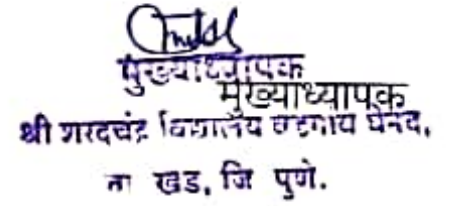 मुख्याध्यापक
मुख्याध्यापक
श्री शरदचंद्र विद्यालय
ता खेड, जि पुणे.